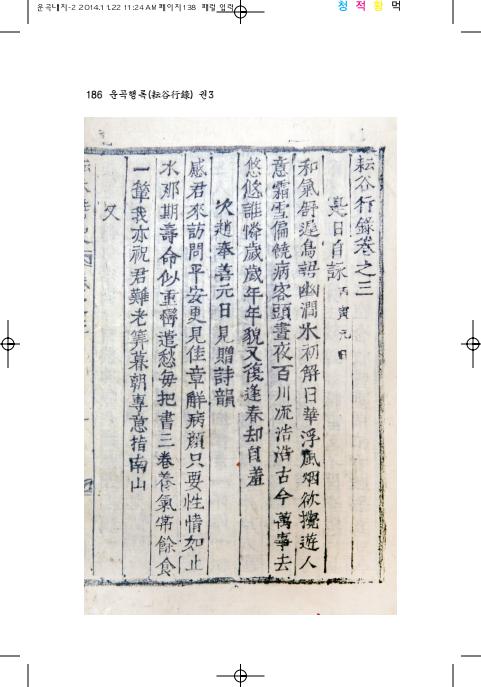 운곡내지-2 2014.11.22 11:24 AM 페이지138 패컬 입력
청 적 황 먹
186 운곡행록(耘谷行錄) 권3
耘谷行錄卷之三
是日自詠 丙寅元日
和氣舒遲鳥語幽澗水初解日華浮風烟欲攪遊人
意霜雪偏饒病客頭晝夜百川流浩浩古今萬事去
悠悠誰憐歲歲年年貌又復逢春却自羞
次趙奉善元日見贈詩韻
感君來訪問平安更見佳章解病顔只要性情如止
水那期壽命似重巒遣愁每把書三卷養氣常餘食
一簞我亦祝君難老筭暮朝專意指南山
又